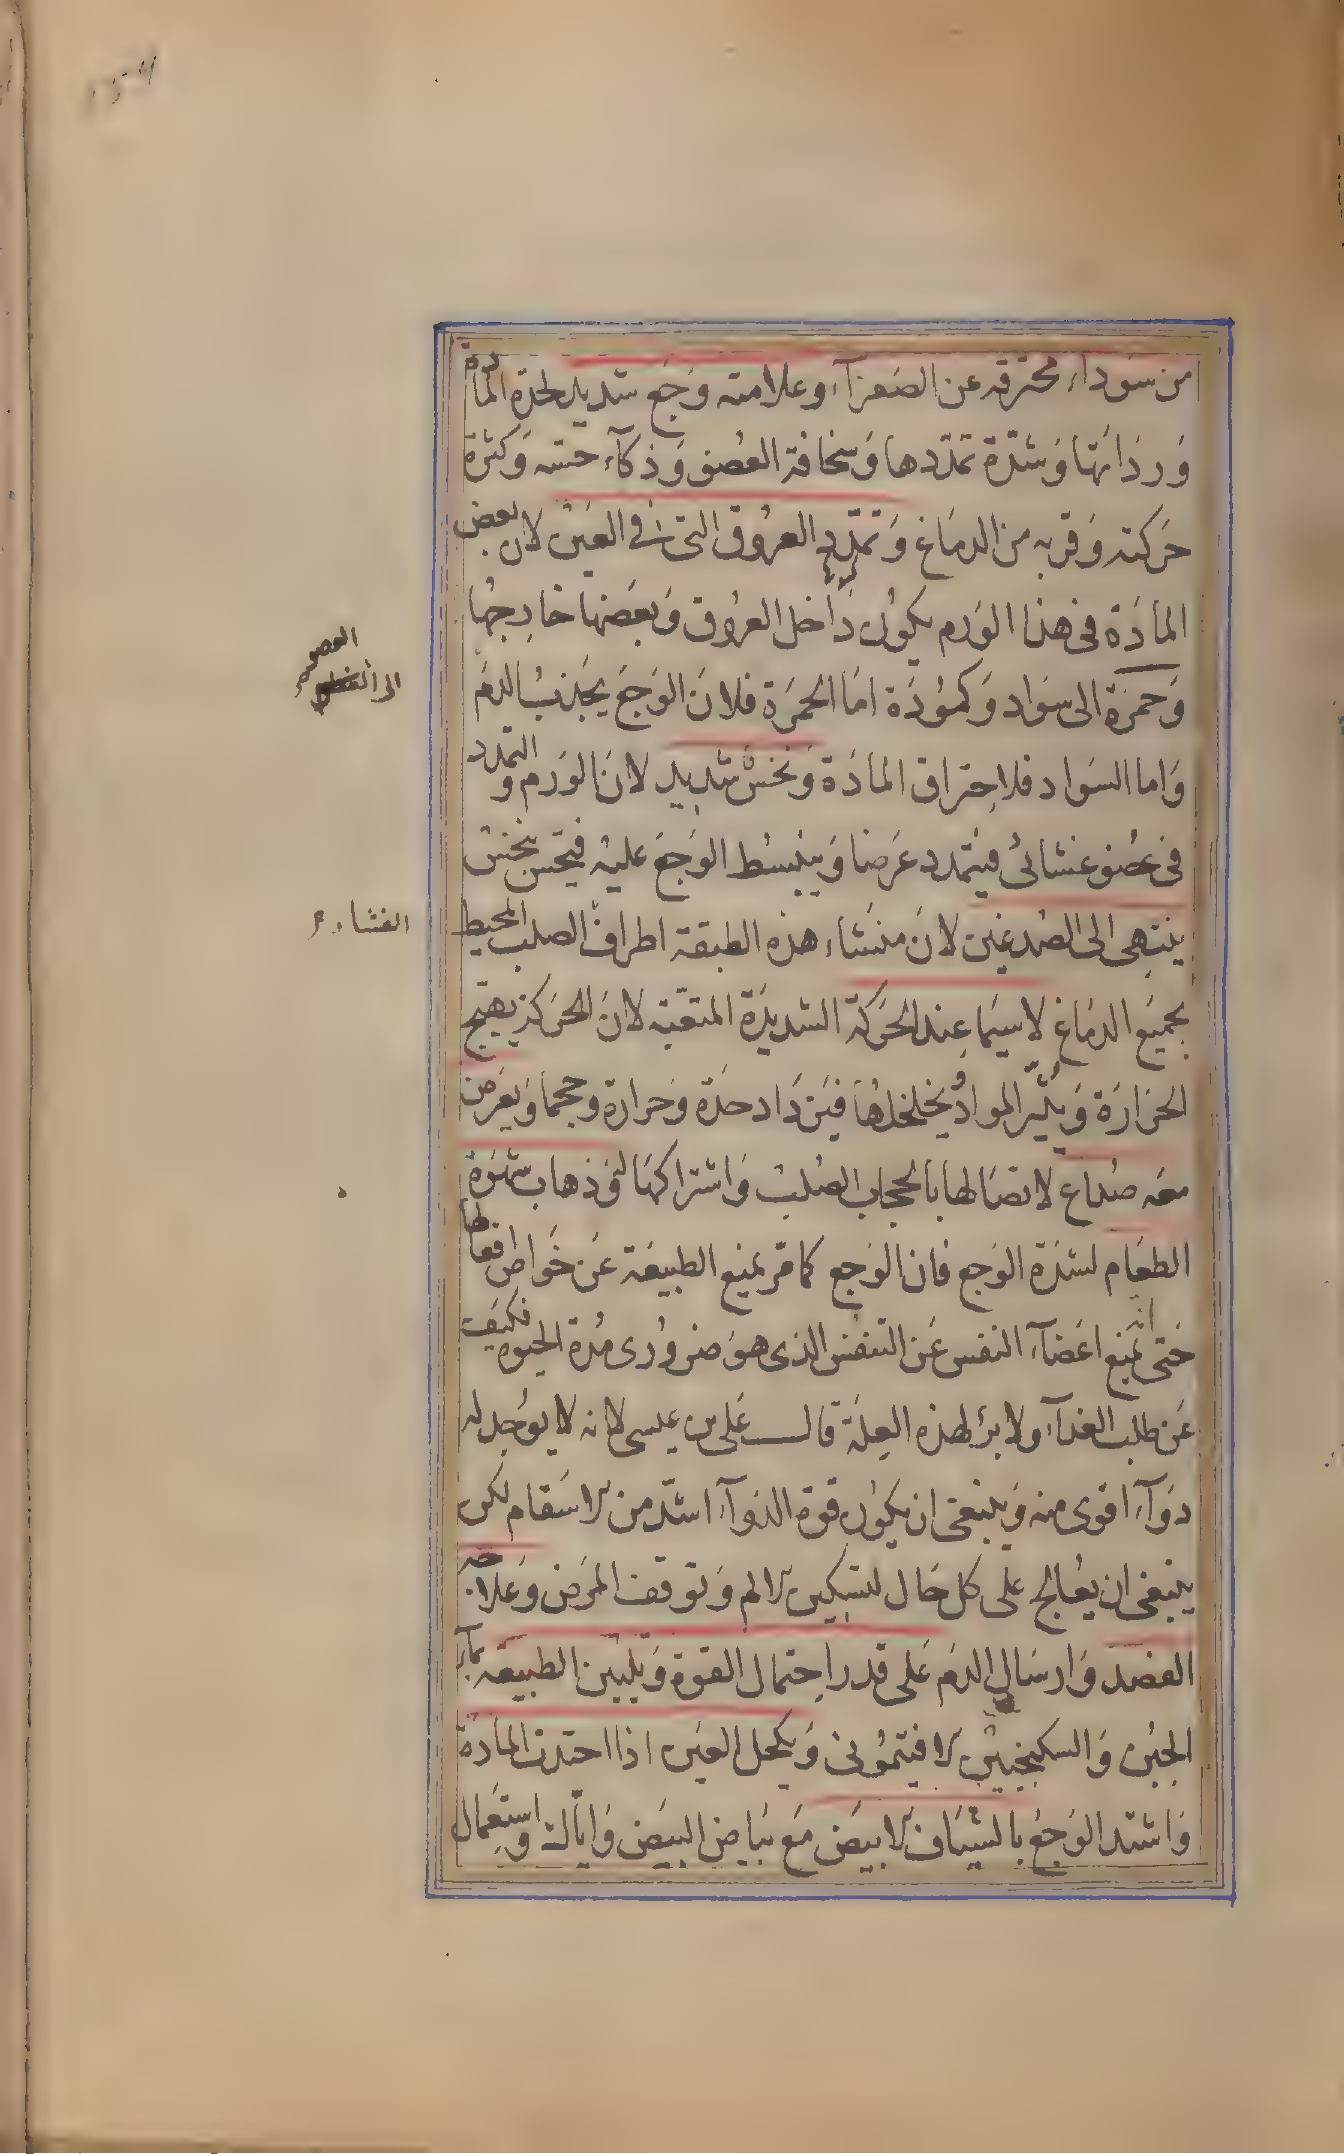 من سوداء محترقه عن الصفرآء وعلامته وجع شديد لحدة المادة
ورداءتها وشدة تمددها وسخافة العضو وذكآء حسه وكثرة
حركته وقربه من الدماغ وتمدد العروق التى فى العين لان بعض
المادة فى هذا الورم يكون داخل العروق وبعضها خارجها
وحمرة الى سواد وكمودة اما الحمرة فلان الوجع يجذب الدم
واما السواد فلاحتراق المادة ونخس شديد لان الورم والتمدد
فى عضو غشائى فيتمدد عرضا وينبسط الوجع عليه فيحس بنخس
ينتهى الى الصدغين لان منشاء هذه الطبقة اطراف الصلب المحيط
بجميع الدماغ لاسيما عند الحركة الشديدة المتعبه لان الحركة يهيج
الحرارة ويثير المواد ويخلخلها فيزداد حدة وحرارة وحجما ويعرض
معه صداع لاتصالها بالحجاب الصلب واشتراكهما لثو ذهاب شهوة
الطعام لشدة الوجع فان الوجع كما مر يمنع الطبيعة عن خواص افعالها
حتى انه يمنع اعضآء النفس عن التنفس الذى هو ضرورى مدة الحيوه فكيف
عن طلب الغذآء ولا برء لهذه العلة قال على بن عيسى لانه لا يوجد له
دوآء اقوى منه وينبغى ان يكون قوة الدوآء اشد من الاسقام لكن
ينبغى ان يعالج على كل حال لتسكين الالم وتوقف المرض وعلاجه
الفصد وارسال الدم على قدر احتمال القوة وتليين الطبيعة بمآء
الجبن والسكنجبين الافتيمونى ويكحل العين اذا احتدت المادة
واشتد الوجع بالشياف الابيض مع بياض البيض واياك واستعمال
العضو
الغشاء